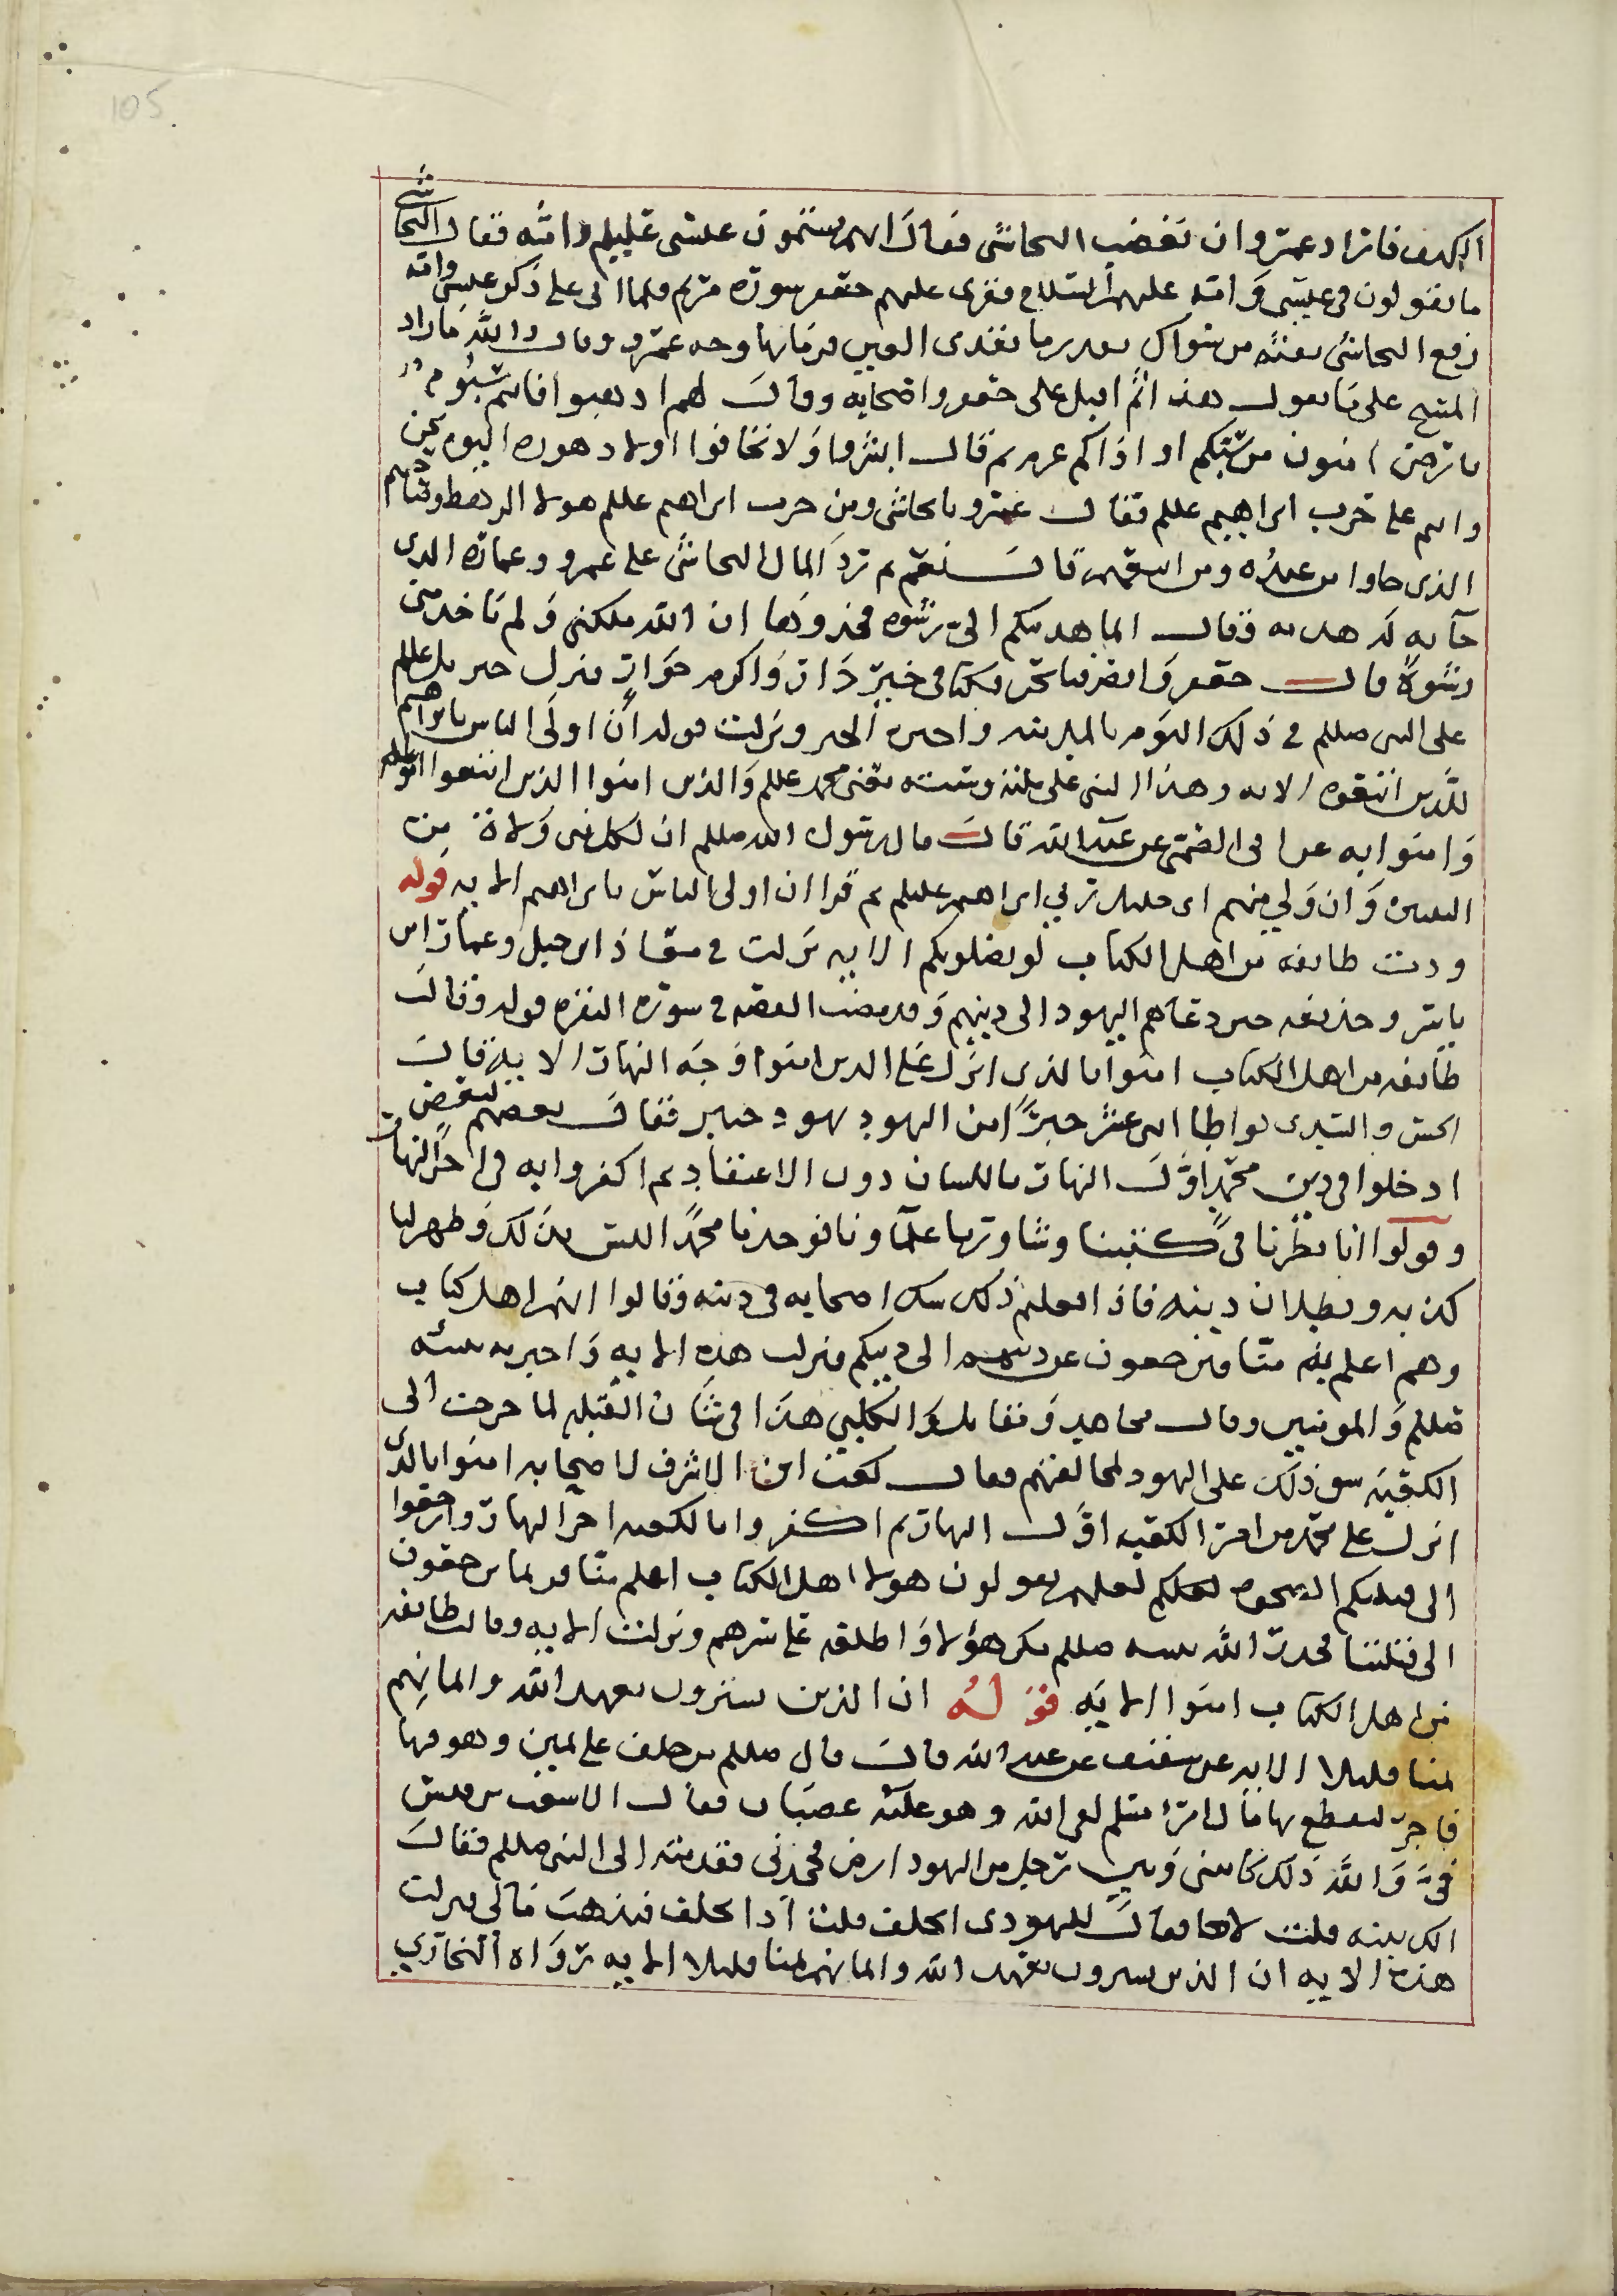 105
الكهف فاراد عمرو ان يغضب النجاشي فقال انهم يشتمون عيسى عليلم وامه فقال النجاشي
ما تقولون في عيسى وامه عليهما السلام فقرى عليهم جعفر سورة مريم فلما اتى على ذكر عيسى وامه
رفع النجاشي نفثه من سواك بقدر ما يقذى العين فرما بها وجه عمرو وقال والله ما زاد
المسيح على ما تقول هذا ثم اقبل على جعفر واصحابه وقال لهم اذهبوا فانتم شيوم
بارضي امنون من سبكم او اذاكم غرم ثم قال ابشروا ولا تخافوا اولا دهوره اليوم
وانتم على حزب ابراهيم عللم فقال عمرو يا نجاشي ومن حزب ابراهيم عللم هولا الرهط وصاحبهم
الذي جاوا من عنده ومن اتبعهم قال نعم ثم رد المال النجاشي على عمرو وعماره الذي
جآ به له هديه وقال انما هديتكم الي رشوه فخذوها ان الله ملكني ولم ياخذ مني
رشوة قال جعفر وانصرفنا نحن فكنا في خير دار واكرم جوار فنزل جبريل عللم
على النبي صللم في ذلك اليوم بالمدينه واخبره الخبر ونزلت قوله ان اولى الناس بابراهيم
للذين اتبعوه الايه وهذا النبي على ملته وسنته يعني محمد عللم والذين امنوا الذين اتبعوا
وامنوا به عن ابي الضحى عن عبد الله قال قال رسول الله صللم ان لكل نبي ولاة من
النبيين وان وليي منهم ابي خليل ربي ابراهيم عليلم ثم قرا ان اولى الناس بابراهيم الايه قوله
ودت طايفه من اهل الكتاب لو يضلونكم الايه نزلت في معاذ ابن جبل وعمار ابن
ياسر وحذيفه حين دعاهم اليهود الى دينهم وقد مضت القصه في سورة البقره قوله وقالت
طايفه من اهل الكتاب امنوا بالذي انزل على الذين امنوا وجه النهار الايه قال
الحسن والسدي تواطا اثنى عشر حبرا من اليهود يهود خيبر فقال بعضهم لبعض
ادخلوا في دين محمد اول النهار باللسان دون الاعتقاد ثم اكفروا به في اخر النهار
وقولوا انا نظرنا في كتبنا وشاورنا علمآونا فوجدنا محمدا ليس بذلك وظهر لنا
كذبه وبطلان دينه فاذا فعلتم ذلك شك اصحابه في دينه وقالوا انهم اهل كتاب
وهم اعلم به منا فيرجعون عن دينهم الى دينكم فنزلت هذه الايه واخبر به نبيه
صللم والمومنين وقال مجاهد ومقاتل والكلبي هذا في شان القبله لما حرفت الى
الكعبه شق ذلك على اليهود لمخالفتهم فقال كعب ابن الاشرف لاصحابه امنوا بالذي
انزل على محمد من امر الكعبه اول النهار ثم اكفروا بالكعبه اخر النهار وارجعوا
الى قبلتكم الصخره لعلكم لعلهم يقولون هولا اهل الكتاب اعلم منا فربما يرجعون
الى قبلتنا فحذر الله نبيه صللم مكر هؤلا واطلعه على سرهم ونزلت الايه وقالت طايفه
من اهل الكتاب امنوا الايه قوله ان الذين يشترون بعهد الله وايمانهم
ثمنا قليلا الايه عن شقيق عن عبد الله قال قال صللم من حلف على يمين وهو فيها
فاجر ليقطع بها مال امرئ مسلم لقي الله وهو عليه غضبان فقال الاشعث بن قيس
في والله ذلك كان بيني وبين رجل من اليهود ارض فجحدني فقدمته الى النبي صللم فقال
الك بينه قلت لا فقال لليهودي احلف قلت اذا يحلف فيذهب مالي فنزلت
هذه الايه ان الذين يشترون بعهد الله وايمانهم ثمنا قليلا الايه رواه البخاري